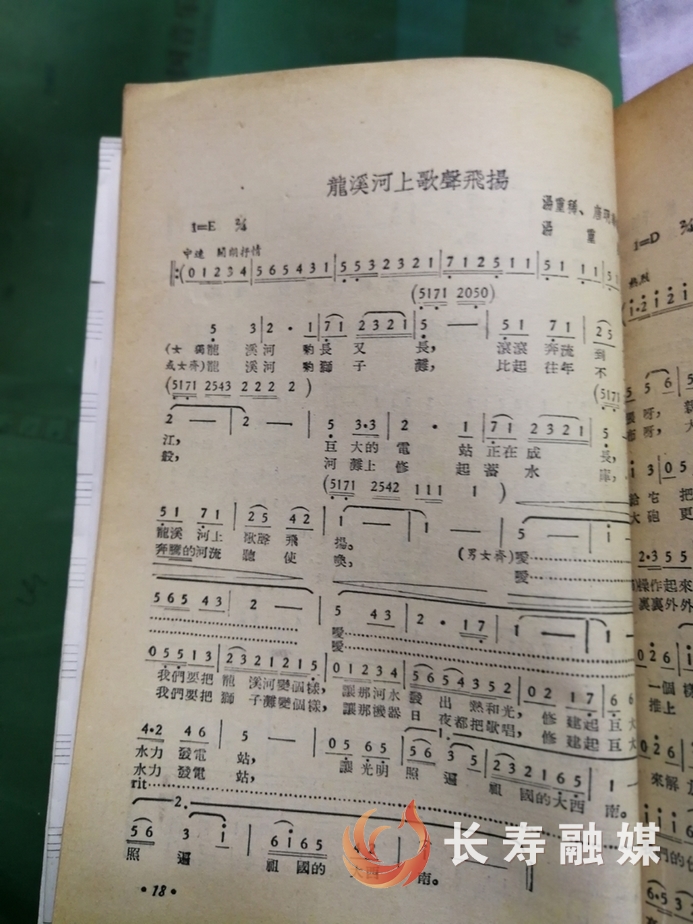 龍溪河上歌聲飛揚
湯重稀、
湯重
1=E 2/4
中速 開朗抒情
01234 565431 553 2321 7125 051 11 51
(5171 2050)
5 3 2· 1 71 2321 5 — 51 71 25
(女獨)龍溪河喲長又長, 滾滾奔流到
或女齊)龍溪河喲獅子灘, 比起往年不
(5171 2543 222 2)
2 — 2 — 5 3·3 2· 1 71 2321 5
江, 巨大的電站正在成長,
般, 河灘上修起蓄水庫,
(5171 2542 111 1)
51 71 25 42 1 — 1 — 5 — 5 —
龍溪河上歌聲飛揚。 (男女齊)噯
奔騰的河流聽使喚, 噯
565 43 2 — 5 43 2· 17 1 — 1
噯
噯
05513 2321215 01234 5654352 02 17 66
我們要把龍溪河變個樣, 讓那河水發出熱和光, 修建起巨大
我們要把獅子灘變個樣, 讓那機器日夜都把歌唱, 修建起巨大
4·2 46 5 — 05 65 56 3 232165 1 —
水力發電站, 讓光明照遍祖國的大西南。
水力發電站,
rit
1.
2.
56 3 i 6i65
照遍祖國的大西南。
·18·
1=D 2/4
熱烈
給它把
大砲更
操作起來
裏裏外外
一個樣
推上
來解放
們的
长寿融媒